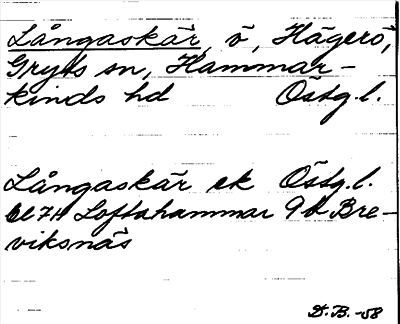 Långaskär, ö, Hägerö,
Gryts sn, Hammar-
kinds hd Östg.l.
Långaskär ek Östg.l.
bl 74 Loftahammar 9b Bre-
viksnäs
D.B. -58